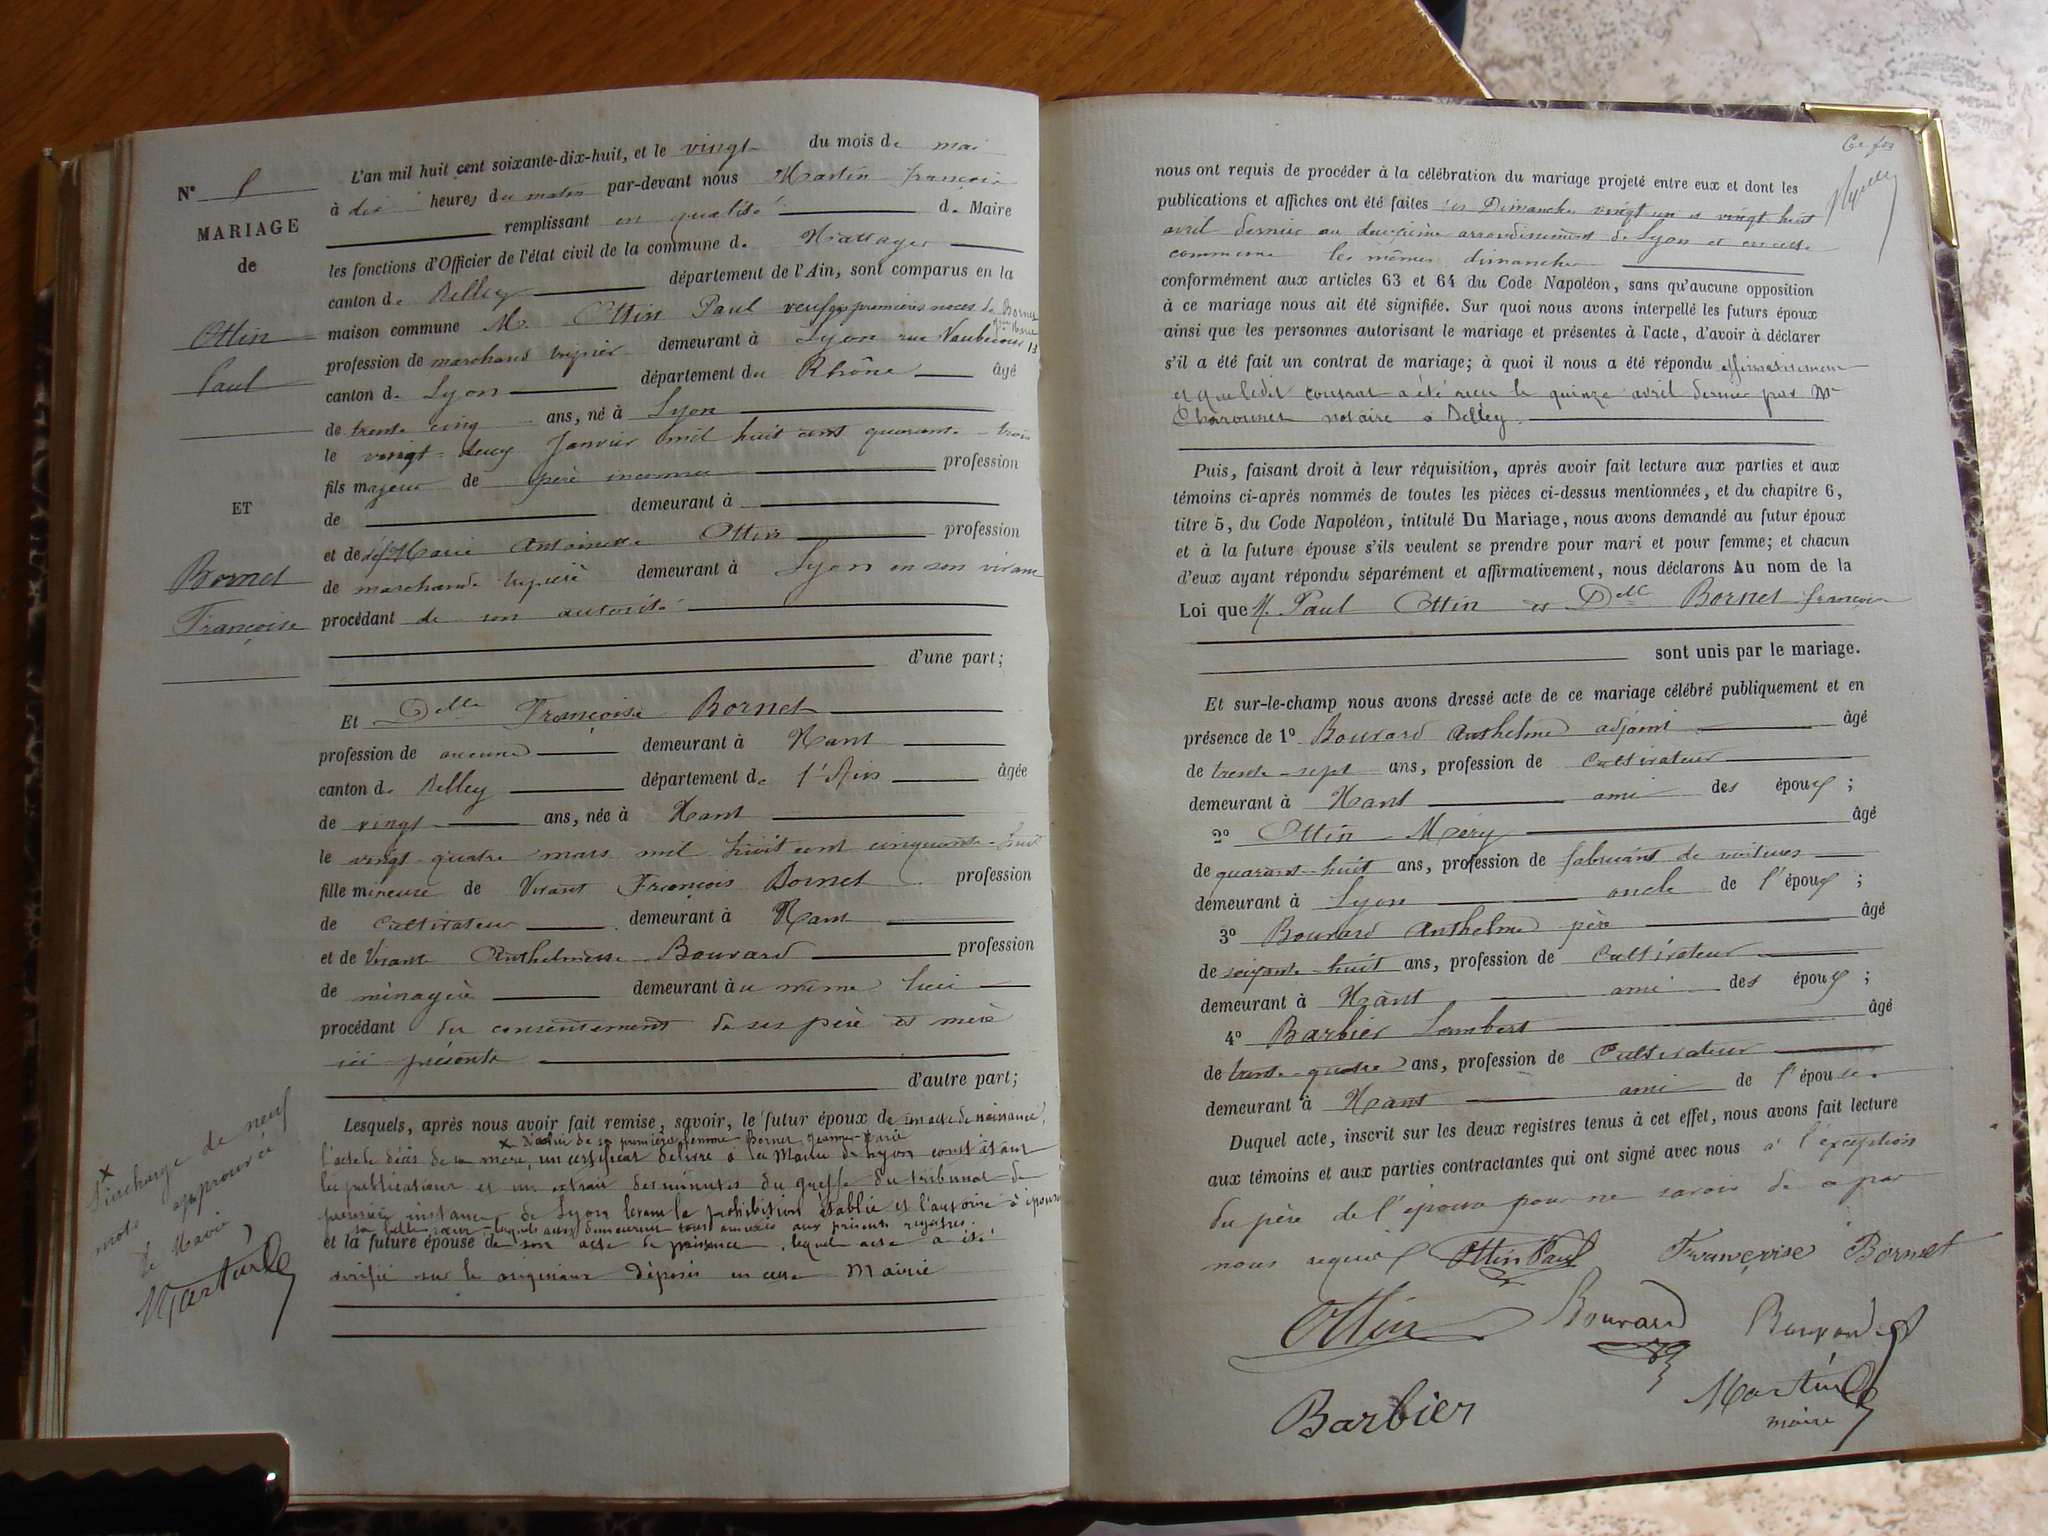 N° 8
MARIAGE
de
Ottin
Paul
ET
Bornet
Françoise
L'an mil huit cent soixante-dix-huit, et le vingt du mois de mai
à dix heures du matin par-devant nous Martin françois
remplissant en qualité de Maire
les fonctions d'Officier de l'état civil de la commune de Nattages
canton de Belley département de l'Ain, sont comparus en la
maison commune M. Ottin Paul veuf en premières noces de Bornet
profession de marchand demeurant à Lyon rue Vaubecour 13
canton de Lyon département du Rhône âgé
de trente cinq ans, né à Lyon
le vingt-deux Janvier mil huit cent quarante-trois
fils majeur de père inconnu profession
de demeurant à
et de déf. Marie Antoinette Ottin profession
de marchande demeurant à Lyon en son vivant
procédant de son autorité
d'une part;
Et Delle Françoise Bornet
profession de aucune demeurant à Nant
canton de Belley département de l'Ain âgée
de vingt ans, née à Nant
le vingt-quatre mars mil huit cent cinquante-huit
fille mineure de Vivant François Bornet profession
de cultivateur demeurant à Nant
et de Vivante Anthelmette Bouvard profession
de ménagère demeurant au même lieu
procédant du consentement de ses père et mère
ici présents
d'autre part;
Lesquels, après nous avoir fait remise, savoir, le futur époux de son acte de naissance,
x de sa première femme Bornet Jeanne-Marie
l'acte de décès de sa mère, un certificat délivré à la Mairie de Lyon constatant
les publications et un extrait des minutes du greffe du tribunal de
première instance de Lyon levant la prohibition établie et l'autorise à épouser
sa belle sœur lesquels aussi demeurent tous annexés aux présents registres
et la future épouse de son acte de naissance, lequel acte a été
vérifié sur les originaux déposés en cette Mairie
x
Surcharge de neuf
mots approuvée
le Maire,
Martin
nous ont requis de procéder à la célébration du mariage projeté entre eux et dont les
publications et affiches ont été faites les Dimanches vingt un et vingt huit
avril dernier au deuxième arrondissement de Lyon et en cette
commune les mêmes dimanches
conformément aux articles 63 et 64 du Code Napoléon, sans qu'aucune opposition
à ce mariage nous ait été signifiée. Sur quoi nous avons interpellé les futurs époux
ainsi que les personnes autorisant le mariage et présentes à l'acte, d'avoir à déclarer
s'il a été fait un contrat de mariage; à quoi il nous a été répondu affirmativement
et que ledit contrat a été reçu le quinze avril dernier par Me
notaire à Belley
Puis, faisant droit à leur réquisition, après avoir fait lecture aux parties et aux
témoins ci-après nommés de toutes les pièces ci-dessus mentionnées, et du chapitre 6,
titre 5, du Code Napoléon, intitulé Du Mariage, nous avons demandé au futur époux
et à la future épouse s'ils veulent se prendre pour mari et pour femme; et chacun
d'eux ayant répondu séparément et affirmativement, nous déclarons Au nom de la
Loi que M. Paul Ottin et Delle Bornet françoise
sont unis par le mariage.
Et sur-le-champ nous avons dressé acte de ce mariage célébré publiquement et en
présence de 1° Bouvard Anthelme adjoint âgé
de trente-sept ans, profession de cultivateur
demeurant à Nant ami des époux;
2° Ottin Méry âgé
de quarante-huit ans, profession de fabricant de voitures
demeurant à Lyon oncle de l'époux;
3° Bouvard Anthelme père âgé
de soixante-huit ans, profession de cultivateur
demeurant à Nant ami des époux;
4° Barbier Lambert âgé
de trente-quatre ans, profession de cultivateur
demeurant à Nant ami de l'épouse.
Duquel acte, inscrit sur les deux registres tenus à cet effet, nous avons fait lecture
aux témoins et aux parties contractantes qui ont signé avec nous à l'exception
du père de l'épouse pour ne savoir de ce par
nous requis Ottin Paul Françoise Bornet
Ottin Bouvard
Barbier Martin
maire